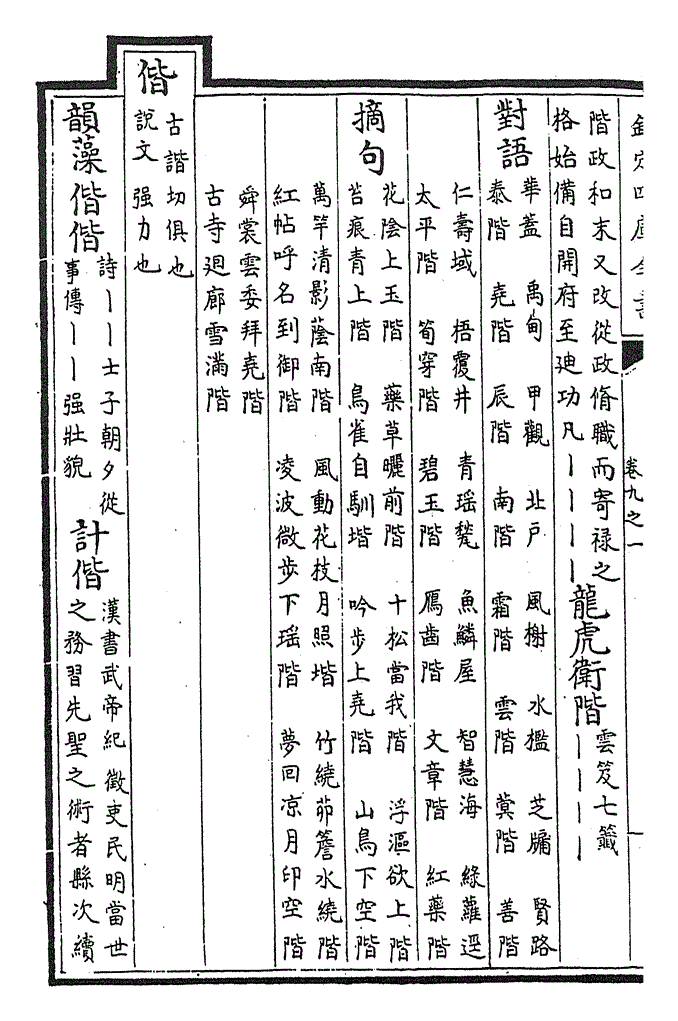 欽定四庫全書 卷九之一
階政和末又改從政脩職而寄禄之
格始備自開府至廸功凡丨丨丨丨
龍虎衛階
雲笈七籤
丨丨丨丨
對語
華蓋 禹甸 甲觀 北戸 風榭 水檻 芝牖 賢路
泰階 堯階 辰階 南階 霜階 雲階 蓂階 善階
仁壽域 梧覆井 青瑶甃 魚鱗屋 智慧海 綠蘿逕
太平階 筍穿階 碧玉階 鴈齒階 文章階 紅藥階
摘句
花陰上玉階 藥草曬前階 十松當我階 浮漚欲上階
苔痕青上階 鳥雀自馴堦 吟步上堯階 山鳥下空階
萬竿清影蔭南階 風動花枝月照堦 竹繞茆簷水繞階
紅帖呼名到御階 凌波微步下瑶階 夢回凉月印空階
舜裳雲委拜堯階
古寺廻廊雪滿階
偕
古諧切俱也
說文 强力也
韻藻
偕偕
詩丨丨士子朝夕從
事傳丨丨强壯貌
計偕
漢書武帝紀徵吏民明當世
之務習先聖之術者縣次續